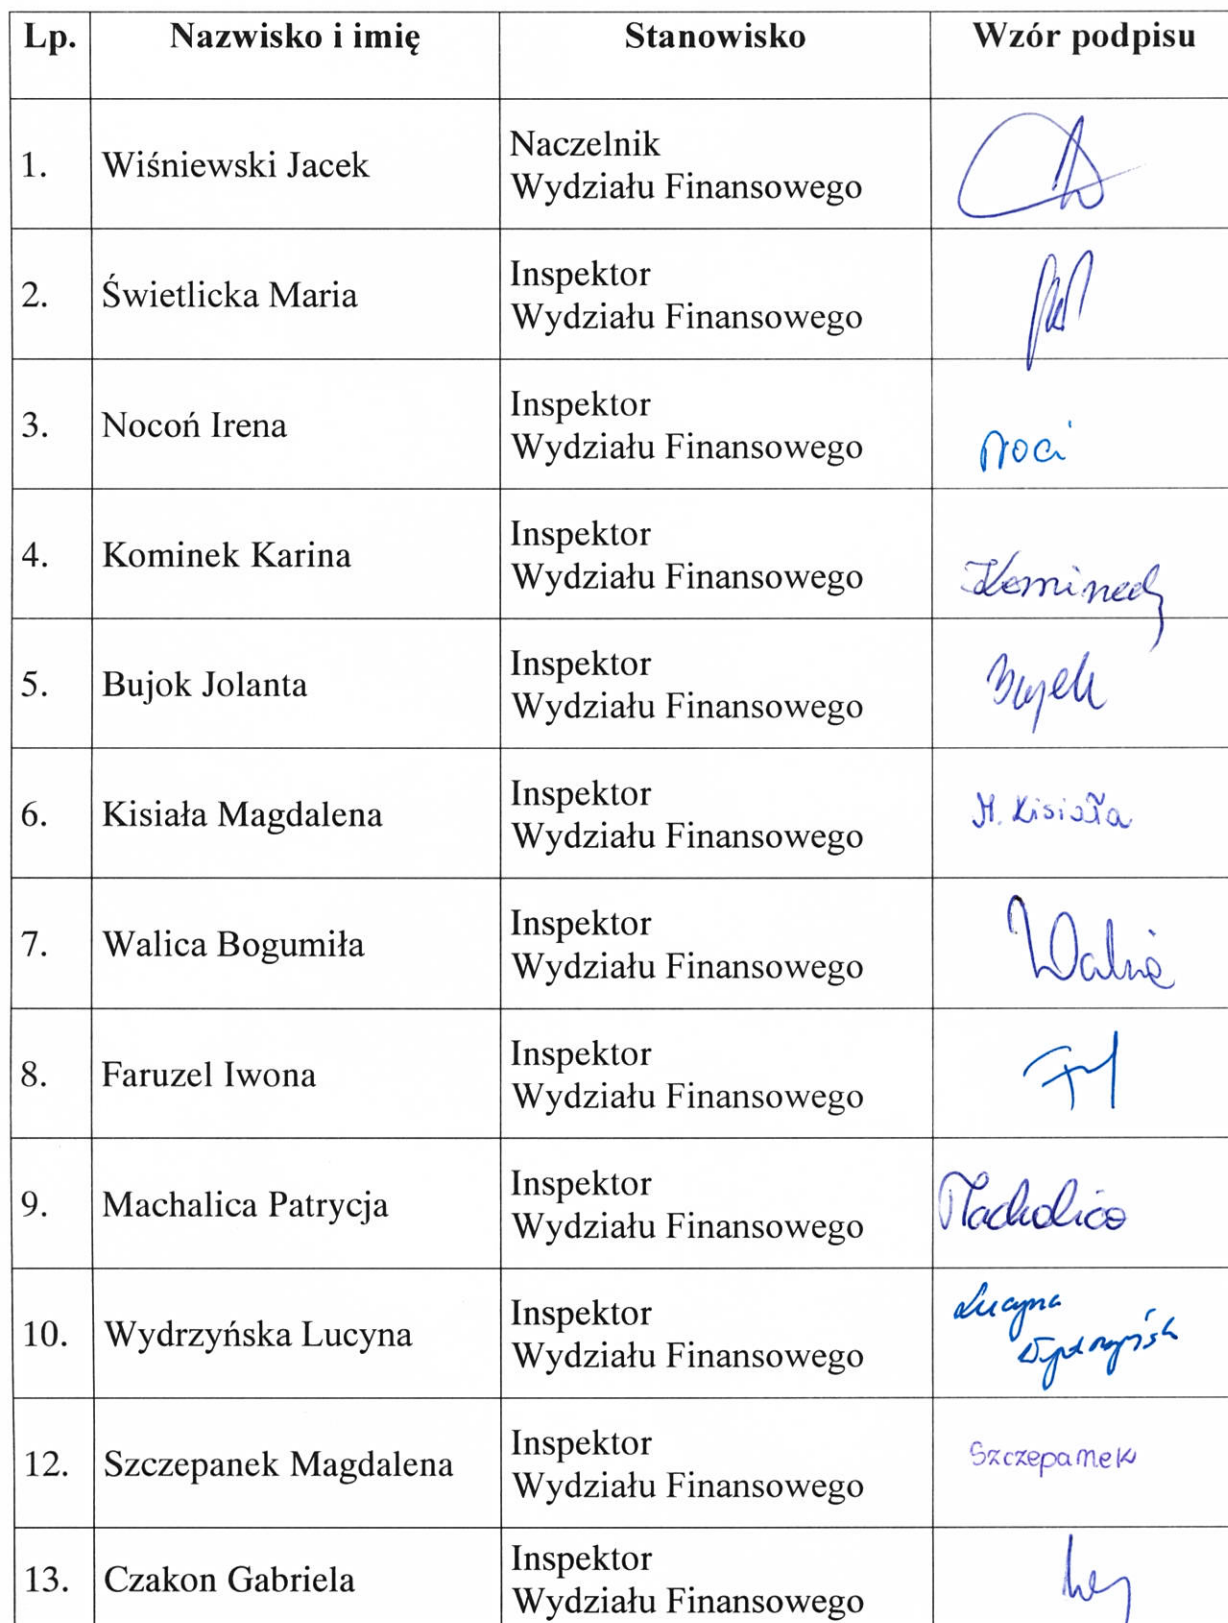 Lp. Nazwisko i imię Stanowisko Wzór podpisu
1. Wiśniewski Jacek Naczelnik
Wydziału Finansowego
2. Świetlicka Maria Inspektor
Wydziału Finansowego
3. Nocoń Irena Inspektor
Wydziału Finansowego
4. Kominek Karina Inspektor
Wydziału Finansowego Kominek
5. Bujok Jolanta Inspektor
Wydziału Finansowego Bujok
6. Kisiała Magdalena Inspektor
Wydziału Finansowego M. Kisiała
7. Walica Bogumiła Inspektor
Wydziału Finansowego
8. Faruzel Iwona Inspektor
Wydziału Finansowego
9. Machalica Patrycja Inspektor
Wydziału Finansowego Machalica
10. Wydrzyńska Lucyna Inspektor
Wydziału Finansowego Lucyna
12. Szczepanek Magdalena Inspektor
Wydziału Finansowego Szczepanek
13. Czakon Gabriela Inspektor
Wydziału Finansowego